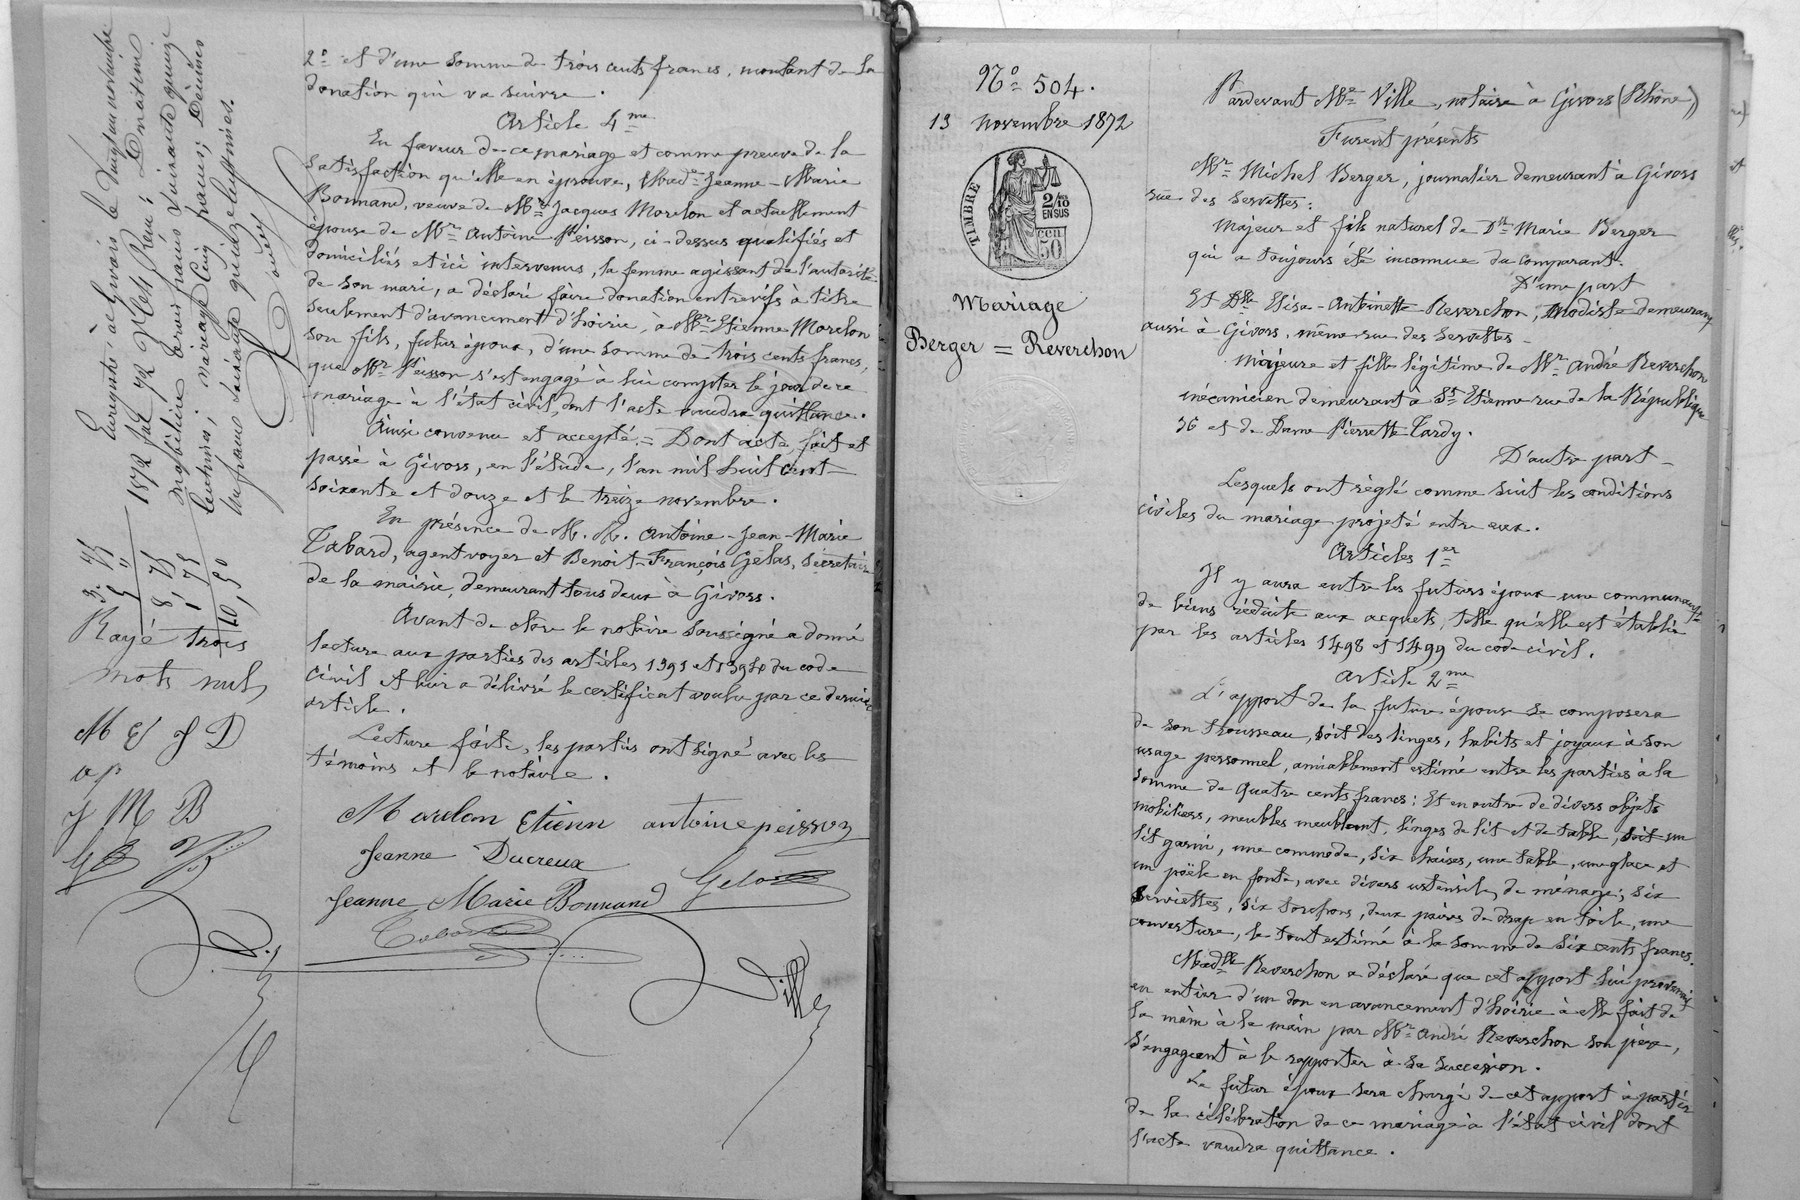 2° et d'une somme de trois cents francs, montant de la
donation qui va suivre.
Article 4me
En faveur de ce mariage et comme preuve de la
satisfaction qu'elle en éprouve, Made Jeanne-Marie
Bonnand, veuve de Mr Jacques Morelon et actuellement
épouse de Mr Antoine Peisson, ci-dessus qualifiés et
domiciliés et ici intervenus, la femme agissant de l'autorité
de son mari, a déclaré faire donation entrevifs à titre
seulement d'avancement d'hoirie, à Mr Etienne Morelon
son fils, futur époux, d'une somme de trois cents francs,
que Mr Peisson s'est engagé à lui compter le jour de ce
mariage à l'état civil, dont l'acte vaudra quittance.
Ainsi convenu et accepté = Dont acte, fait et
passé à Givors, en l'étude, l'an mil huit cent
soixante et douze et le treize novembre.
En présence de M. M. Antoine-Jean-Marie
Tabard, agent voyer et Benoit-François Gelas, secrétaire
de la mairie, demeurant tous deux à Givors.
Avant de clore le notaire soussigné a donné
lecture aux parties des articles 1391 et 1394 du code
civil et leur a délivré le certificat voulu par ce dernier
article.
Lecture faite, les parties ont signé avec les
témoins et le notaire.
Morelon Etienn antoine peisson
Jeanne Ducreux
Jeanne Marie Bonnand Gelas
Tabard
Ville
Enregistré à Givors le vingt un novembre
1872 fol 72 Reçu: Donation
mobilière trois francs soixante quinze
centimes; mariage cinq francs; Décimes
un franc soixante quinze centimes.
3,75
5 "
8,75
1,75
10,50
Rayé trois
mots nuls
M E J D
a p
J M B
N° 504.
13 novembre 1872
TIMBRE
2/10 EN SUS
50 CEN
Mariage
Berger = Reverchon
Pardevant Me Ville, notaire à Givors (Rhône)
Furent présents
Mr Michel Berger, journalier demeurant à Givors
rue des Servettes:
Majeur et fils naturel de Dlle Marie Berger
qui a toujours été inconnue du comparant.
D'une part
Et Dlle Elisa-Antoinette Reverchon, Modiste demeurant
aussi à Givors, même rue des Servettes -
Majeure et fille légitime de Mr André Reverchon
mécanicien demeurant à St Etienne rue de la République
36 et de Dame Pierrette Tardy.
D'autre part -
Lesquels ont réglé comme suit les conditions
civiles du mariage projeté entre eux.
Articles 1er
Il y aura entre les futurs époux une communauté
de biens réduite aux acquets, telle qu'elle est établie
par les articles 1498 et 1499 du code civil.
Article 2me
L'apport de la future épouse se composera
de son trousseau, soit des linges, habits et joyaux à son
usage personnel, amiablement estimé entre les parties à la
somme de quatre cents francs: Et en outre de divers objets
mobiliers, meubles meublant, linges de lit et de table, soit un
lit garni, une commode, six chaises, une table, une glace et
un poële en fonte, avec divers ustensiles de ménage; six
serviettes, six torchons, deux paires de drap en toile, une
couverture, le tout estimé à la somme de six cents francs.
Madlle Reverchon a déclaré que cet apport lui provenait
en entier d'un don en avancement d'hoirie à elle fait de
la main à la main par Mr André Reverchon son père,
s'engageant à le rapporter à sa succession.
Le futur époux sera chargé de cet apport à partir
de la célébration de ce mariage à l'état civil dont
l'acte vaudra quittance.